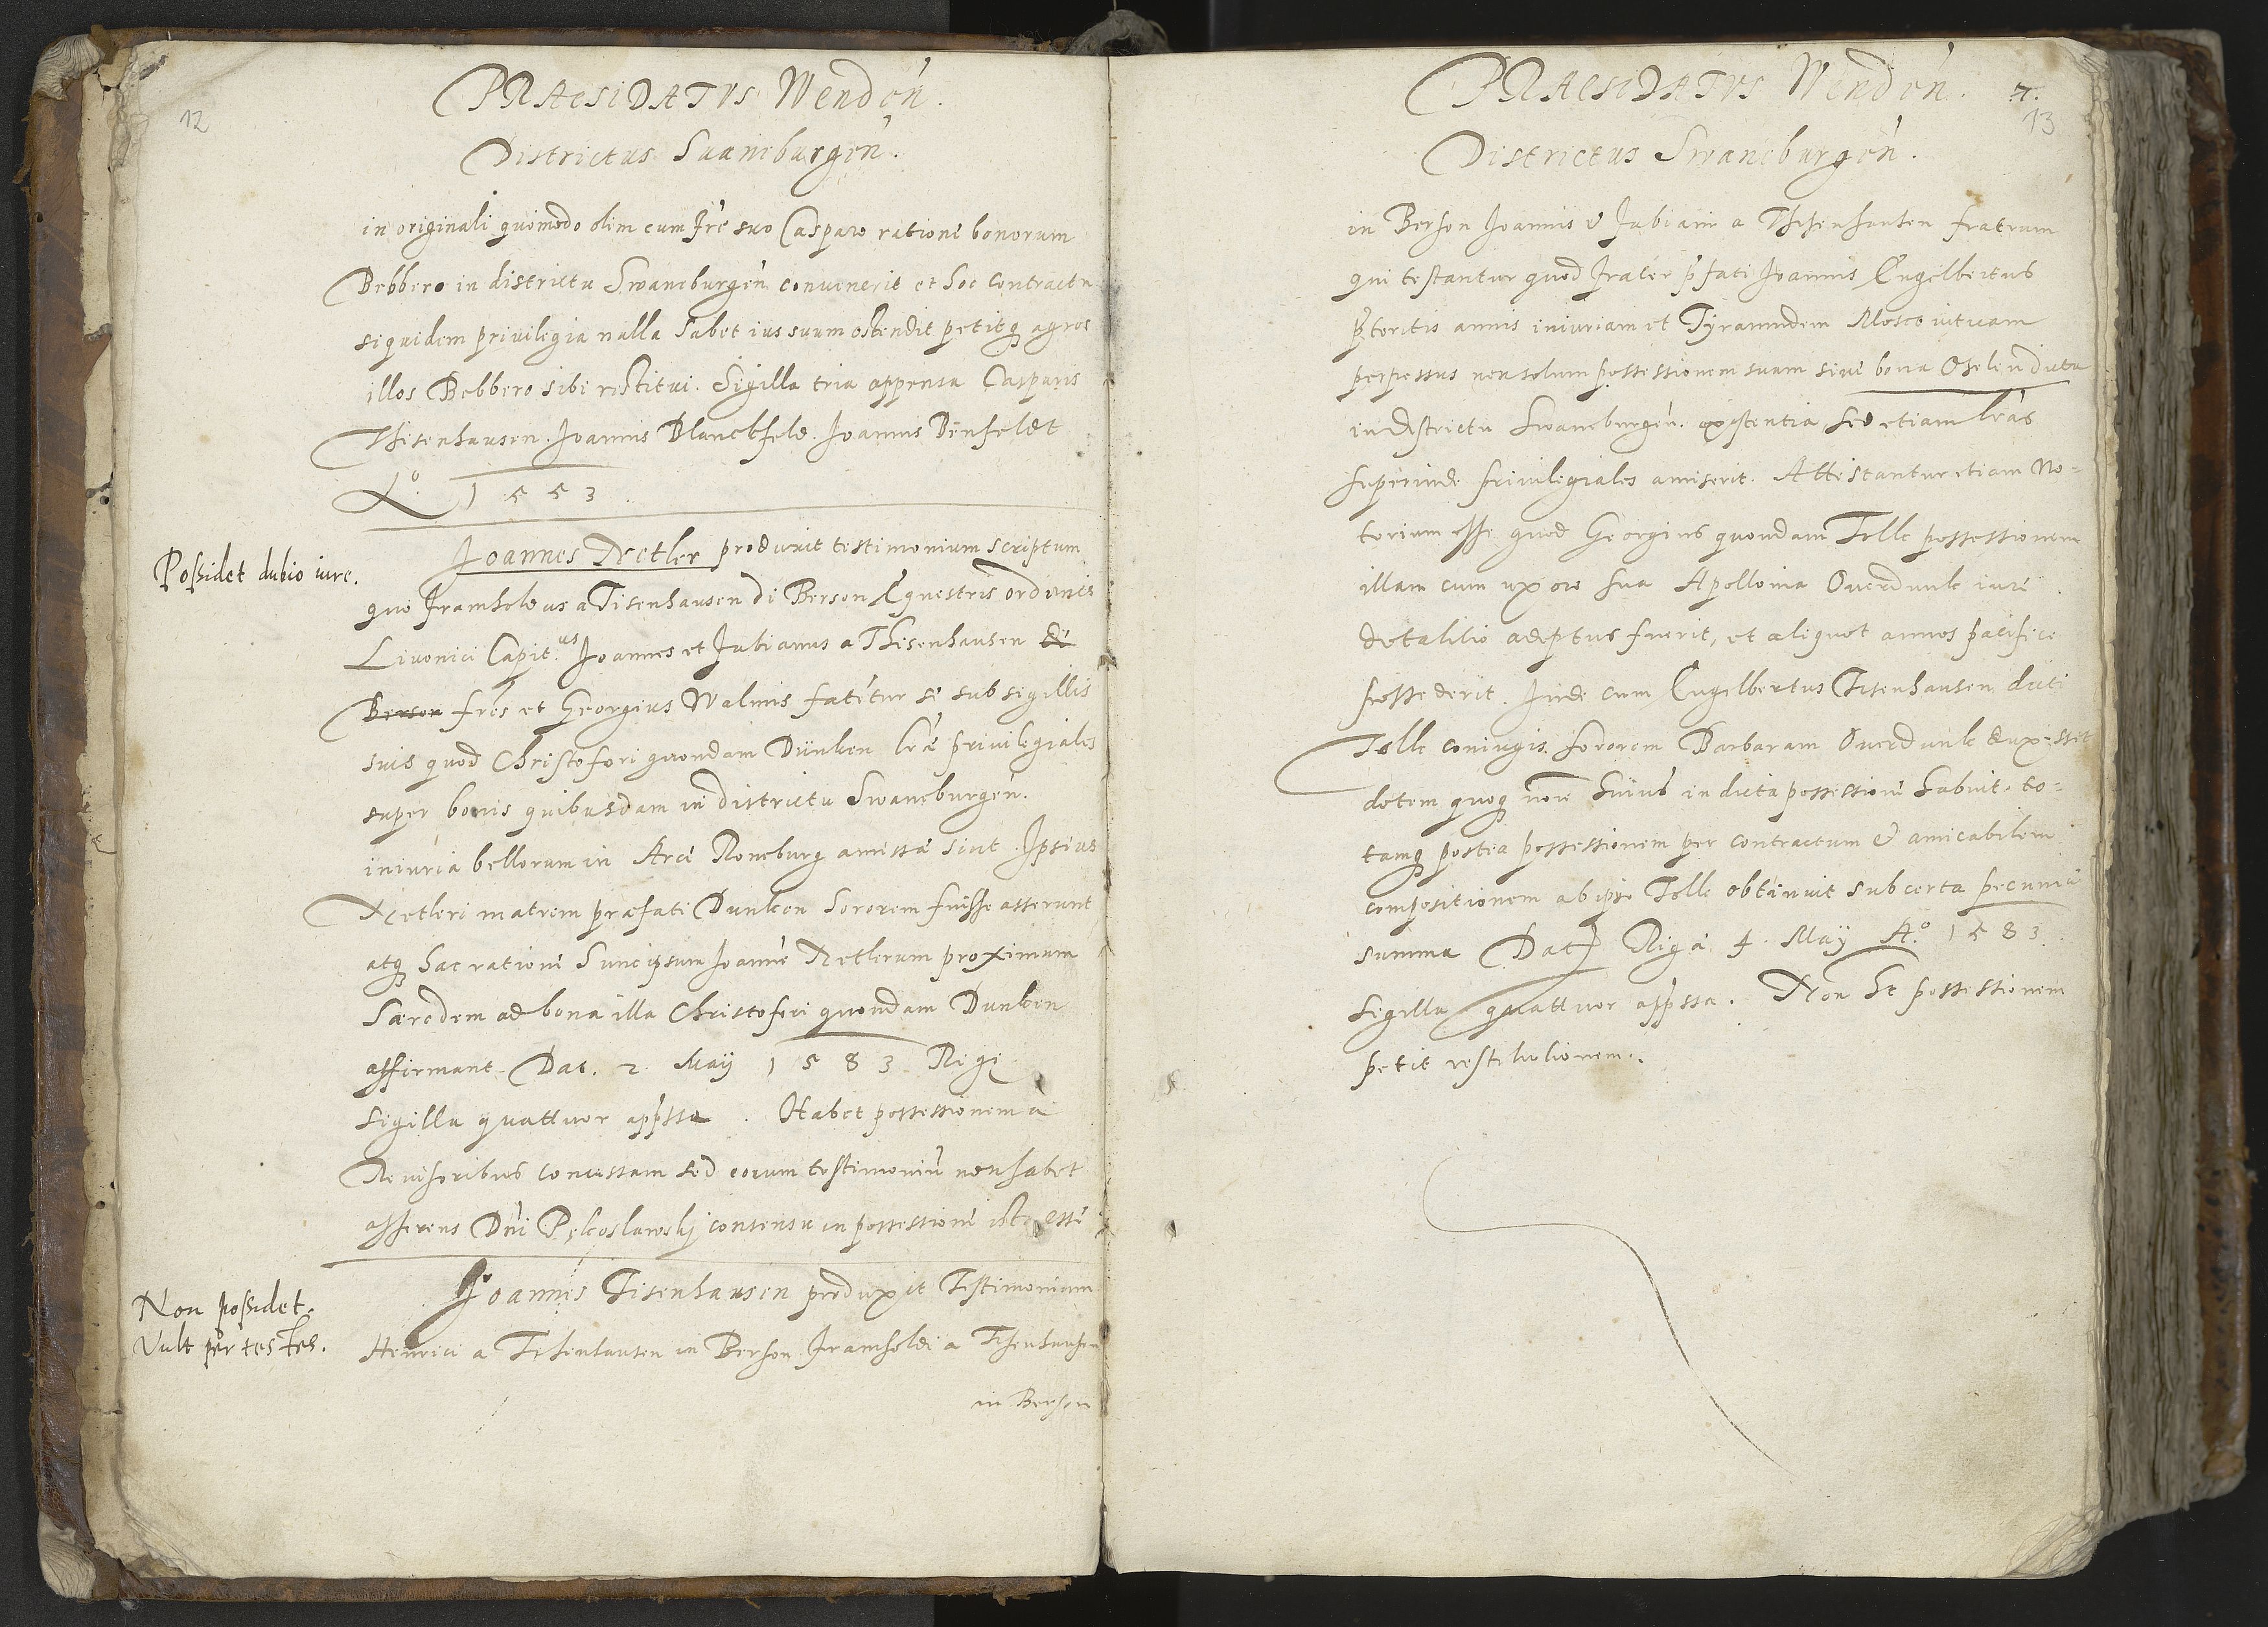 12
PRAESIDATVS Wendeń.
Districtus Suaneburgeń.
in originali quomodo olim cum fr̃e suo Casparo ratione bonorum
Bebbero in districtu Swaneburgeń convenerit et hoc contractu
siquidem privilegia nulla habet ius suum ostendit petitq; agros
illos Bebbero sibi restitui. Sigilla tria appensa Casparis
Thisenhausen. Joannis Blanckfeld. Joannis Denfeldt
A.º 1553.
Possidet dubio iure.
Joannes Netler produxit testimonium scriptum
quo Framholdus a Tisenhausen di Berson Equestris ordinis
Livonici Capit.us Joannes et Fabianus a Thisenhausen de
Berson fr̃es et Georgius Walmis fatetur se sub sigillis
suis quod Christofori quondam Dünken lr̃ae privilegiales
super bonis quibusdam in districtu Swaneburgeń.
iniuria bellorum in Arce Roneburg amissae sint. Ipsius
Netleri matrem praefati Dunken Sororem fuisse asserunt
atq; hac ratione hunc ipsum Joanne Netlerum proximum
haerodem ad bona illa Christofori quondam Dunken
affirmant. Dat. 2. Maÿ 1583 Rigę
Sigilla quattuor app̃ssa. Habet possessionem a
Revisoribus concessam sed eorum testimoniũ non habet
asserens Dñi Pękoslawskj consensu in possessione esse
Non possidet.
Vult per testes.
Joannes Tisenhausen produxit Testimonium
Henrici a Tisenhausen in Berson Framholdi a Tisenhausen
in Berson
PRAESIDATVS Wendeń. 7.
13
Districtus Swaneburgeń.
in Berson Joannis & Fabiani a Thisenhausen fratrum
qui testantur quod frater p̃fati Joannis Engelbertus
p̃teritis annis iniuriam et Tyrannidem Moscoviticam
perpessus non solum possessionem suam sive bona Oselen dicta
in districtu Swaneburgeń. existentia sed etiam lr̃as
superinde privilegiales amiserit. Attestantur etiam No=
torium esse quod Georgius quondam Tolle possessionem
illam cum uxore sua Apollonia Overdunk iure
dotalitio adeptus fuerit, et aliquot annos pacifice
possederit. Inde cum Engelbertus Tisenhausen dicti
Tolle coniugis sororem Barbaram Overdunk duxisset
dotem quoq; noĩe huius in dicta possessione habuit. to=
tamq; postea possessionem per contractum & amicabilem
compositionem ab ipso Tolle obtinuit sub certa pecuniae
summa Dat Rigae 4. Maÿ A.º 1583.
Sigilla quattuor app̃ssa. Non ht possessionem
petit restitutionem.